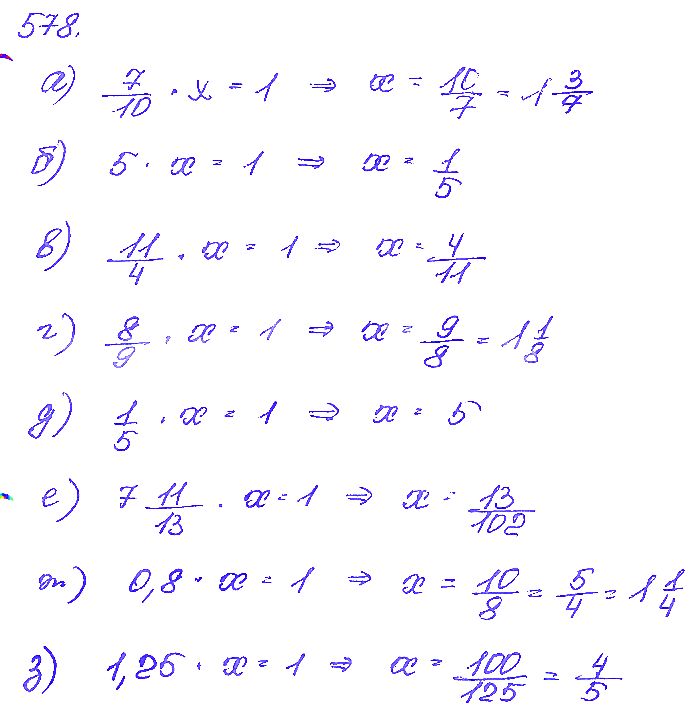 578.
а) 7/10 · x = 1 ⇒ x = 10/7 = 1 3/7
б) 5 · x = 1 ⇒ x = 1/5
в) 11/4 · x = 1 ⇒ x = 4/11
г) 8/9 · x = 1 ⇒ x = 9/8 = 1 1/8
д) 1/5 · x = 1 ⇒ x = 5
е) 7 11/13 · x = 1 ⇒ x = 13/102
ж) 0,8 · x = 1 ⇒ x = 10/8 = 5/4 = 1 1/4
з) 1,25 · x = 1 ⇒ x = 100/125 = 4/5